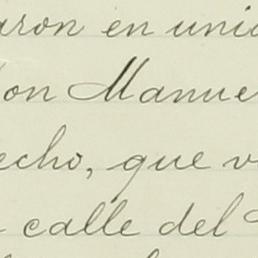 aron en unió
don Manue
echo, que v
calle del